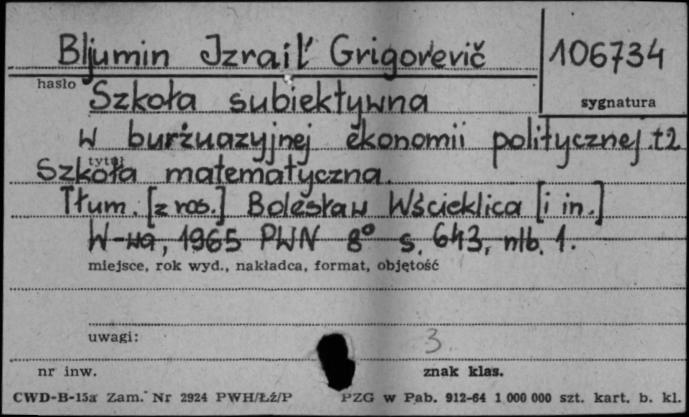 Bljumin Izrail' Grigor'evič
106734
hasło
Szkoła subiektywna
sygnatura
w burżuazyjnej ekonomii politycznej t2
tytuł
Szkoła matematyczna.
Tłum. [z ros.] Bolesław Wścieklica [i in.]
W-wa, 1965 PWN 8° s. 643, nlb. 1.
miejsce, rok wyd., nakładca, format, objętość
uwagi:
3
nr inw.
znak klas.
CWD-B-15a Zam. Nr 2924 PWH/Łź/P PZG w Pab. 912-64 1 000 000 szt. kart. b. kl.